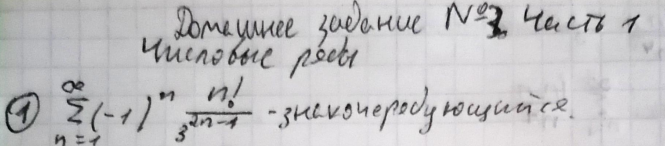 Домашнее задание №2 Часть 1
Числовые ряды
① ∞ ∑ n=1 (-1)^n n!/3^(2n-1) - знакочередующийся.